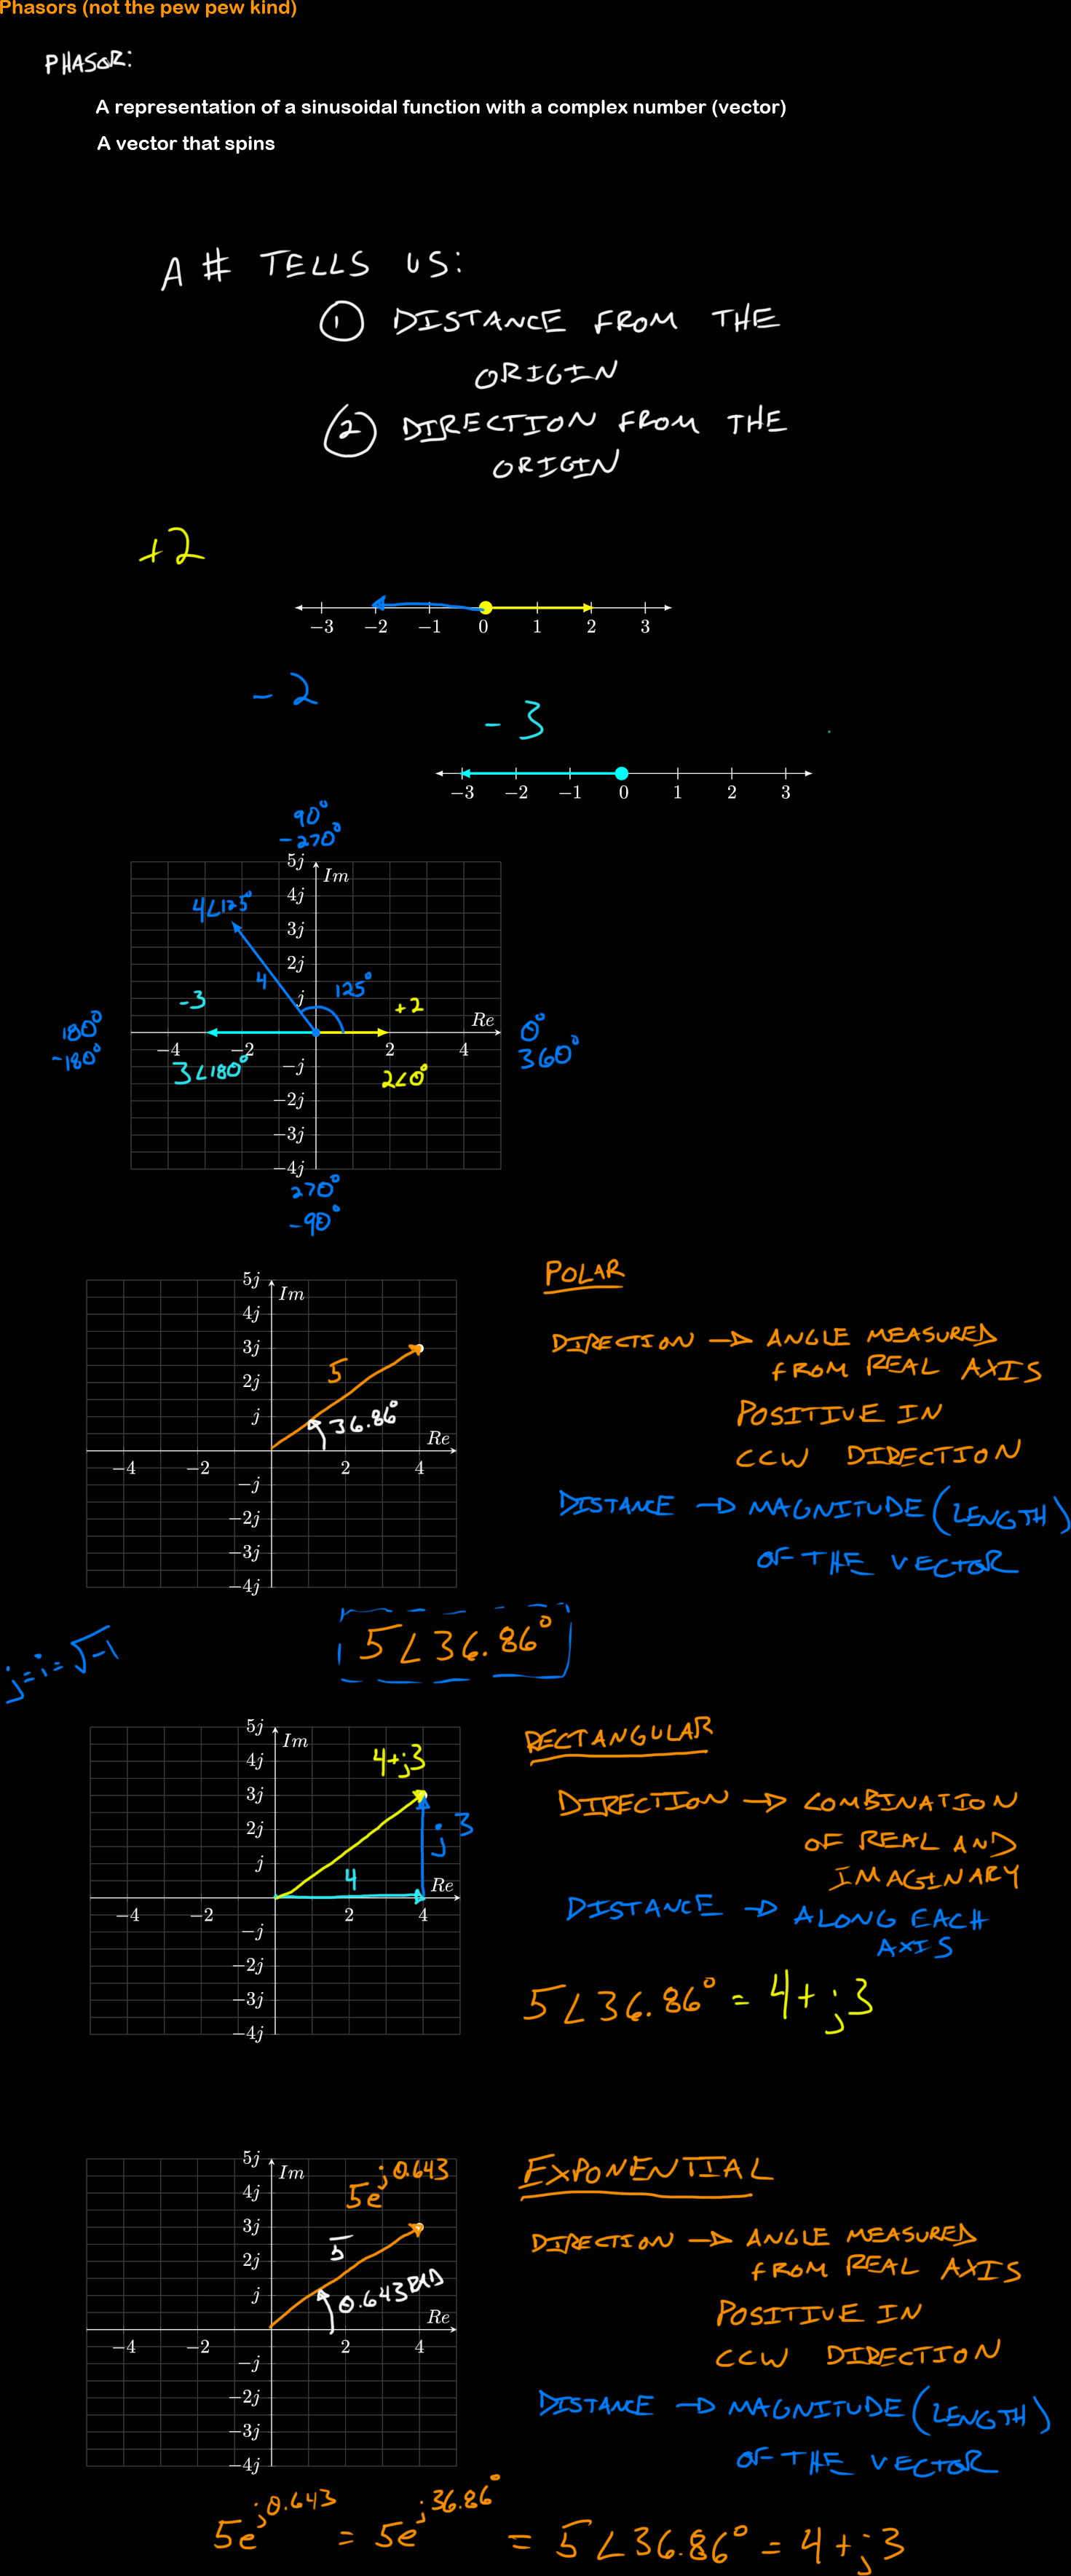 Phasors (not the pew pew kind)
PHASOR:
A representation of a sinusoidal function with a complex number (vector)
A vector that spins
A # TELLS US:
① DISTANCE FROM THE
ORIGIN
② DIRECTION FROM THE
ORIGIN
+2
−3 −2 −1 0 1 2 3
-2
-3
−3 −2 −1 0 1 2 3
90°
-270°
5j
Im
4j
4∠125°
3j
2j
4
125°
j
-3
+2
Re
180°
-180°
0°
360°
−4 −2 2 4
3∠180°
2∠0°
−j
−2j
−3j
−4j
270°
-90°
POLAR
DIRECTION → ANGLE MEASURED
FROM REAL AXIS
POSITIVE IN
CCW DIRECTION
DISTANCE → MAGNITUDE (LENGTH)
OF THE VECTOR
5j
Im
4j
3j
5
2j
j
36.86°
Re
−4 −2 2 4
−j
−2j
−3j
−4j
5∠36.86°
j=i=√-1
RECTANGULAR
DIRECTION → COMBINATION
OF REAL AND
IMAGINARY
DISTANCE → ALONG EACH
AXIS
5∠36.86° = 4+j3
5j
Im
4j
4+j3
3j
2j
j3
j
4
Re
−4 −2 2 4
−j
−2j
−3j
−4j
EXPONENTIAL
DIRECTION → ANGLE MEASURED
FROM REAL AXIS
POSITIVE IN
CCW DIRECTION
DISTANCE → MAGNITUDE (LENGTH)
OF THE VECTOR
5j
Im
5e^j0.643
4j
3j
5
2j
j
0.643RAD
Re
−4 −2 2 4
−j
−2j
−3j
−4j
5e^j0.643 = 5e^j36.86° = 5∠36.86° = 4+j3